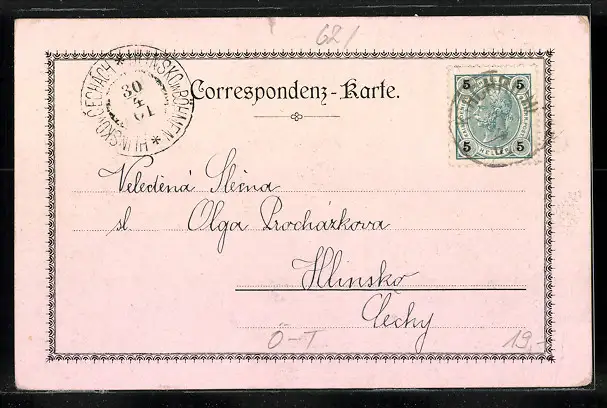 621
HLINSKO V ČECHÁCH * HLINSKO IN BÖHMEN *
30
4
01
Correspondenz-Karte.
5 5
5 5
Veleděná Slečna
sl. Olga Procházkova
Hlinsko
Čechy
Ö-T
19.-